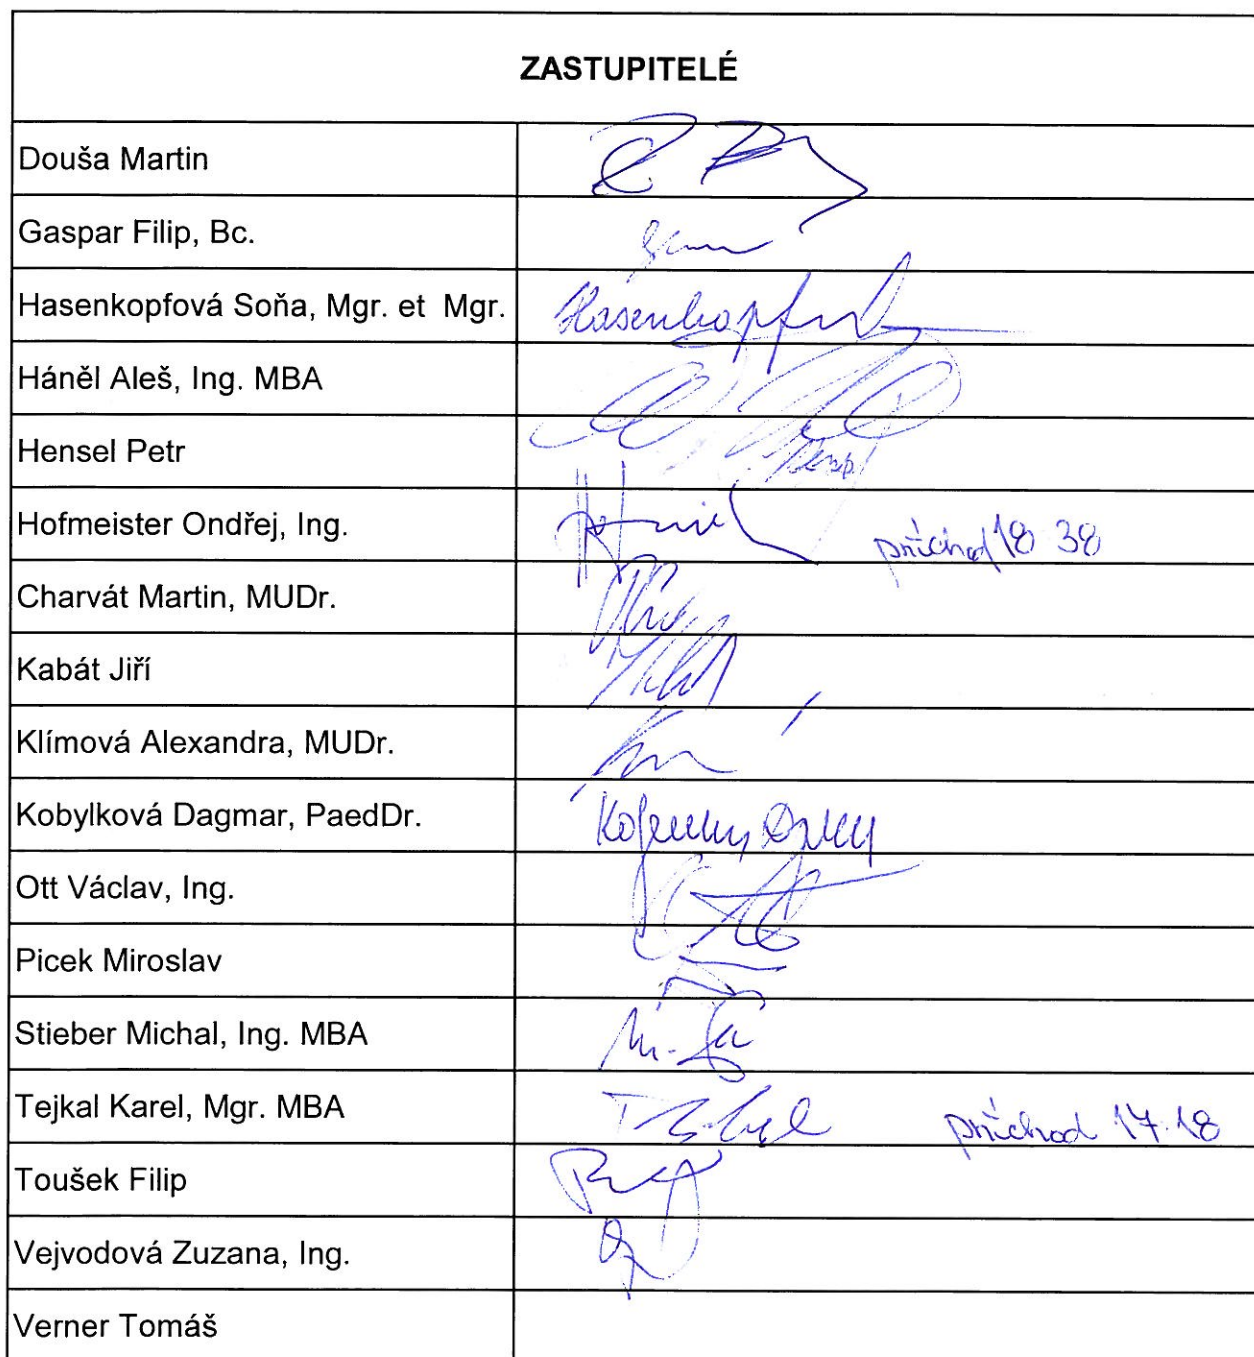 ZASTUPITELÉ
Douša Martin
Gaspar Filip, Bc.
Hasenkopfová Soňa, Mgr. et Mgr.
Háněl Aleš, Ing. MBA
Hensel Petr
Hofmeister Ondřej, Ing. příchod 18 38
Charvát Martin, MUDr.
Kabát Jiří
Klímová Alexandra, MUDr.
Kobylková Dagmar, PaedDr.
Ott Václav, Ing.
Picek Miroslav
Stieber Michal, Ing. MBA
Tejkal Karel, Mgr. MBA příchod 17.18
Toušek Filip
Vejvodová Zuzana, Ing.
Verner Tomáš